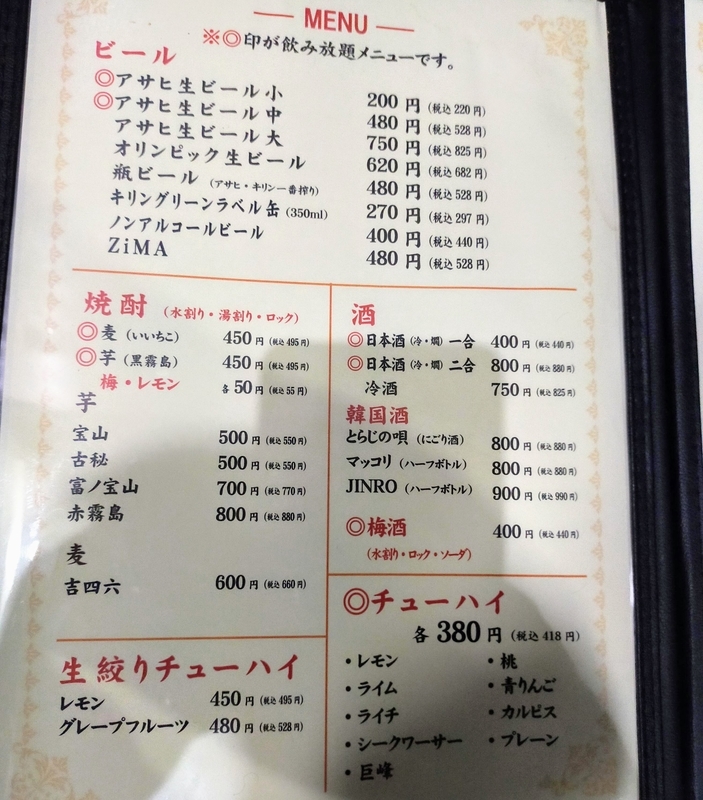 MENU
※◎印が飲み放題メニューです。
ビール
◎アサヒ生ビール小 200円(税込220円)
◎アサヒ生ビール中 480円(税込528円)
アサヒ生ビール大 750円(税込825円)
オリンピック生ビール 620円(税込682円)
瓶ビール(アサヒ・キリン一番搾り) 480円(税込528円)
キリングリーンラベル缶(350ml) 270円(税込297円)
ノンアルコールビール 400円(税込440円)
ZiMA 480円(税込528円)
焼酎(水割り・湯割り・ロック)
◎麦(いいちこ) 450円(税込495円)
◎芋(黒霧島) 450円(税込495円)
梅・レモン 各50円(税込55円)
芋
宝山 500円(税込550円)
古秘 500円(税込550円)
富ノ宝山 700円(税込770円)
赤霧島 800円(税込880円)
麦
吉四六 600円(税込660円)
生絞りチューハイ
レモン 450円(税込495円)
グレープフルーツ 480円(税込528円)
酒
◎日本酒(冷・燗)一合 400円(税込440円)
◎日本酒(冷・燗)二合 800円(税込880円)
冷酒 750円(税込825円)
韓国酒
とらじの唄(にごり酒) 800円(税込880円)
マッコリ(ハーフボトル) 800円(税込880円)
JINRO(ハーフボトル) 900円(税込990円)
◎梅酒 400円(税込440円)
(水割り・ロック・ソーダ)
◎チューハイ
各380円(税込418円)
・レモン
・ライム
・ライチ
・シークワーサー
・巨峰
・桃
・青りんご
・カルピス
・プレーン